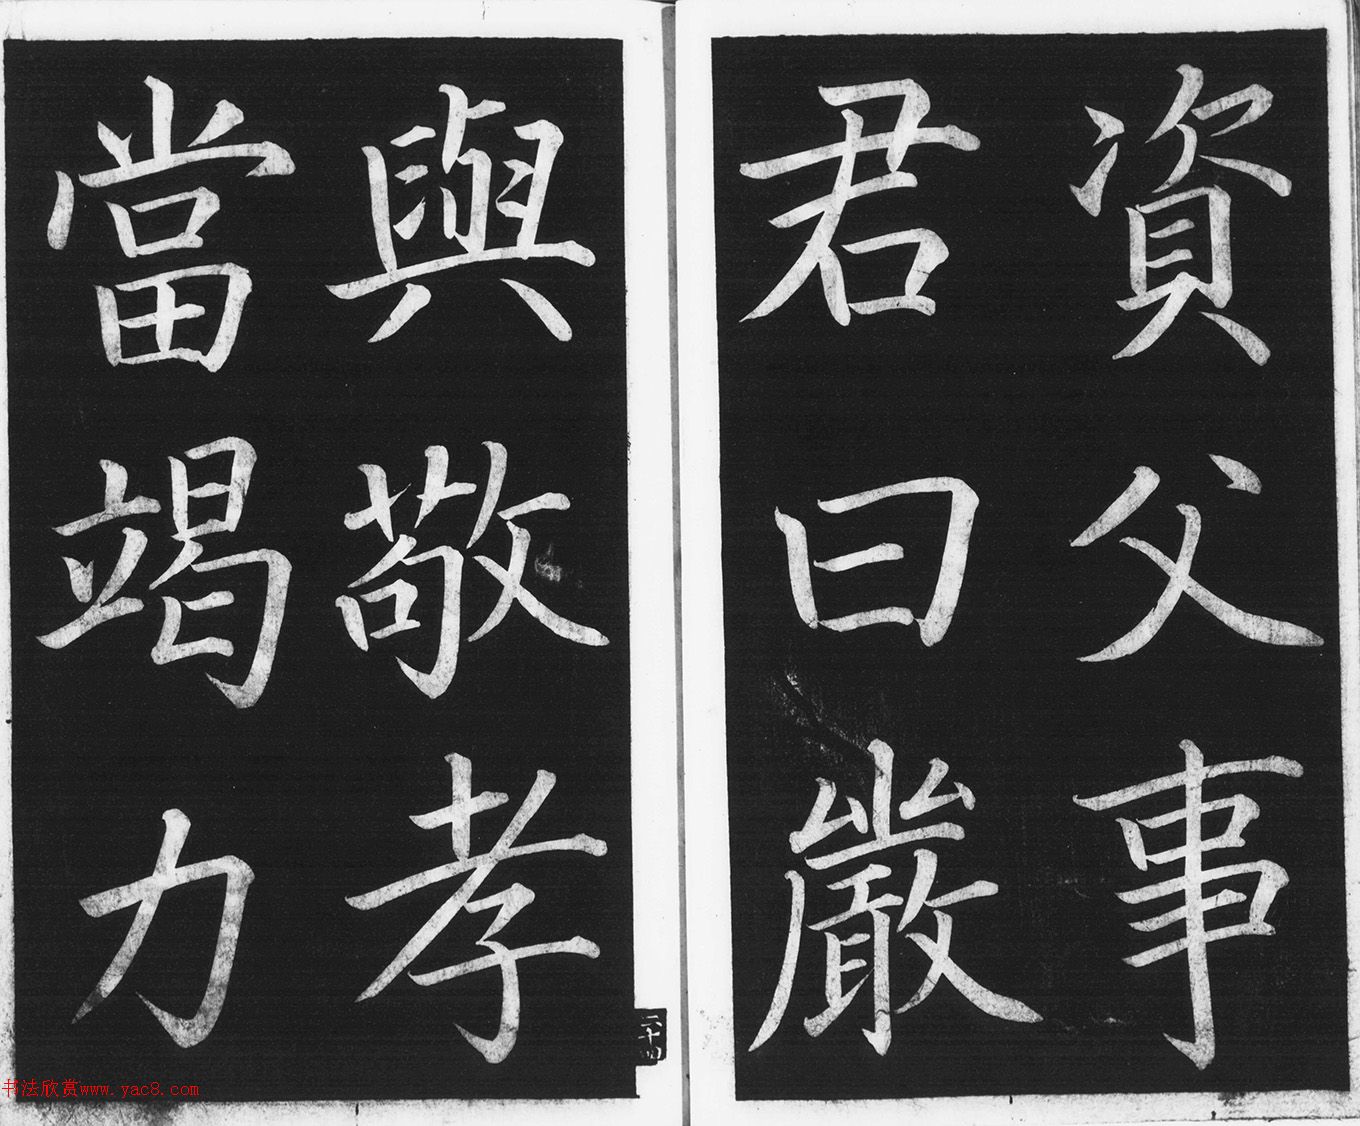 資父事
君曰嚴
與敬孝
當竭力
二十四
书法欣赏www.yac8.com